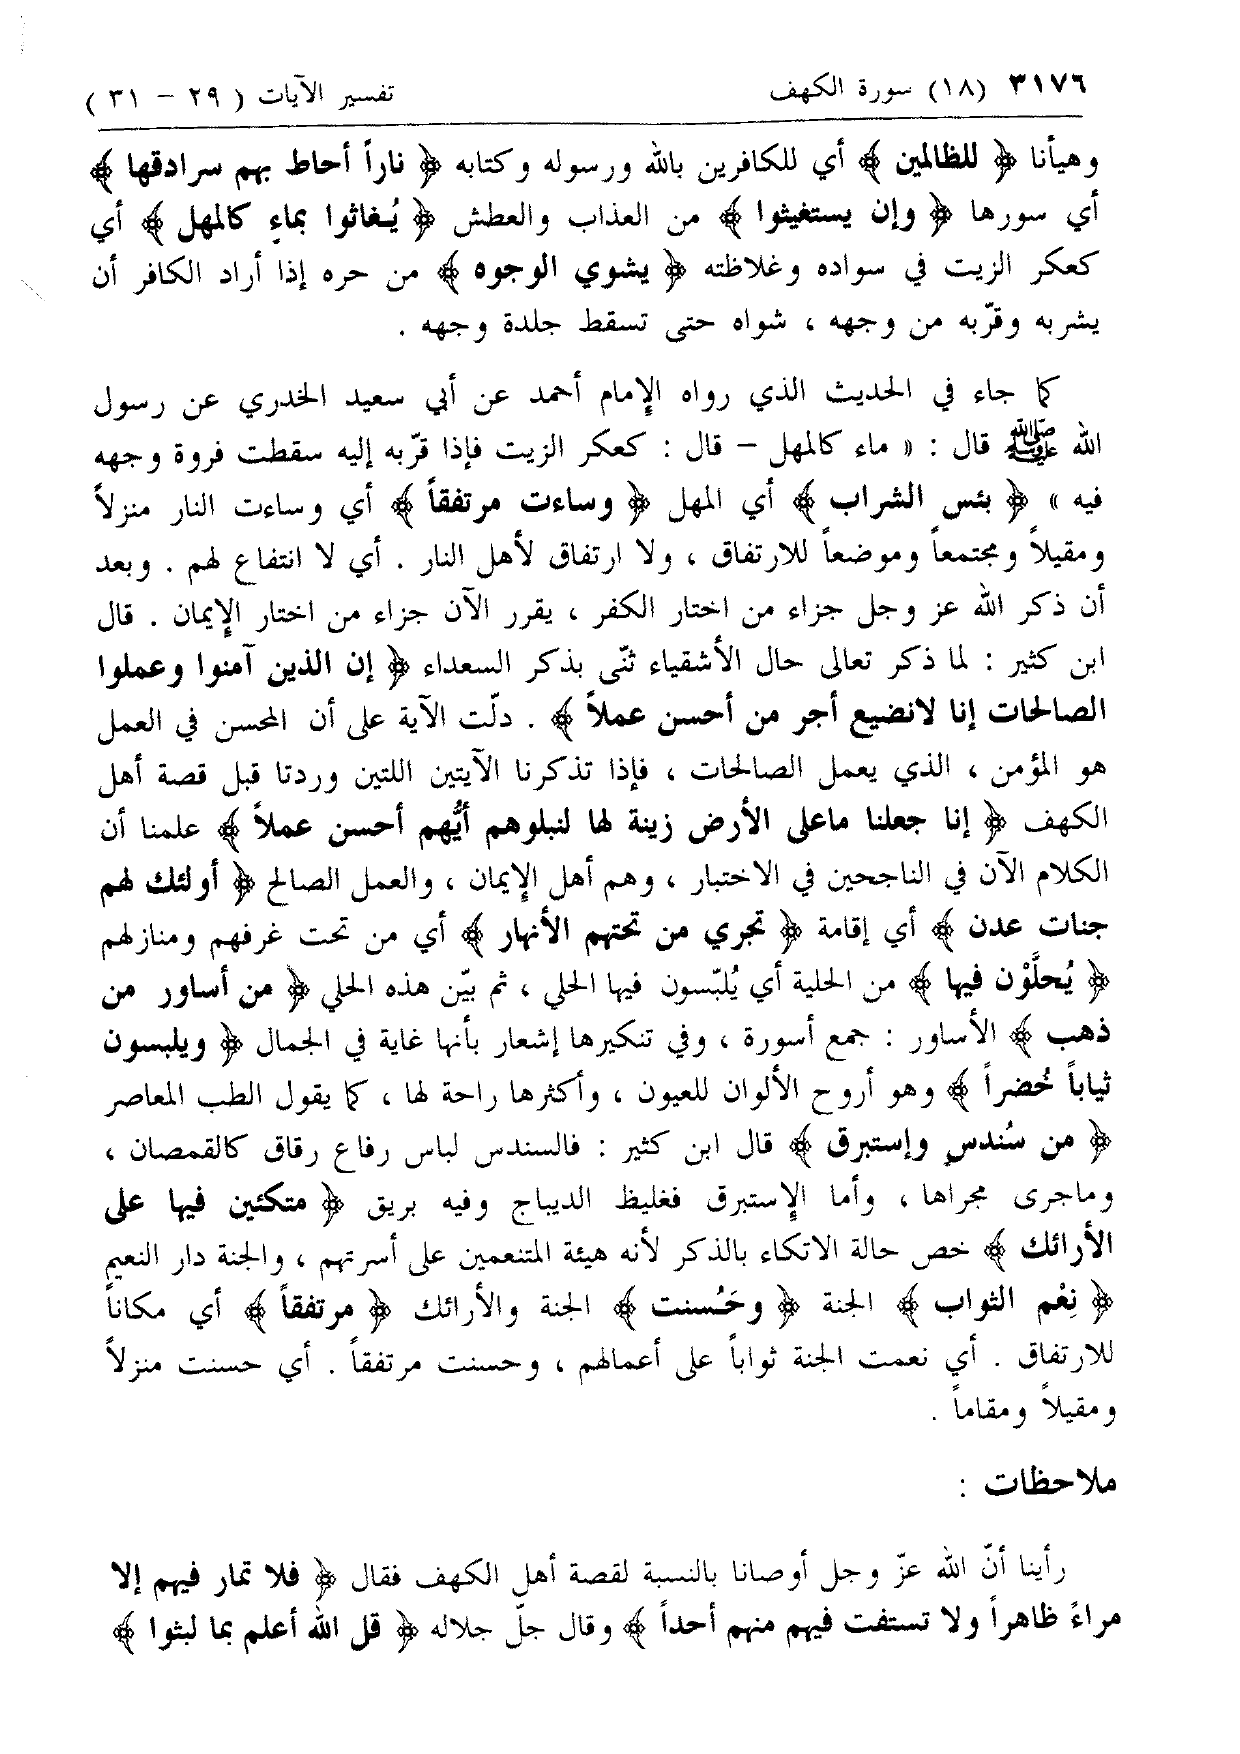 ٣١٧٦ (١٨) سورة الكهف تفسير الآيات ( ٢٩ – ٣١ )
وهيأنا ﴿ للظالمين ﴾ أي للكافرين بالله ورسوله وكتابه ﴿ ناراً أحاط بهم سرادقها ﴾
أي سورها ﴿ وإن يستغيثوا ﴾ من العذاب والعطش ﴿ يُغاثوا بماءٍ كالمهل ﴾ أي
كعكر الزيت في سواده وغلاظته ﴿ يشوي الوجوه ﴾ من حره إذا أراد الكافر أن
يشربه وقرّبه من وجهه ، شواه حتى تسقط جلدة وجهه .
كما جاء في الحديث الذي رواه الإمام أحمد عن أبي سعيد الخدري عن رسول
الله ﷺ قال : « ماء كالمهل – قال : كعكر الزيت فإذا قرّبه إليه سقطت فروة وجهه
فيه » ﴿ بئس الشراب ﴾ أي المهل ﴿ وساءت مرتفقاً ﴾ أي وساءت النار منزلاً
ومقيلاً ومجتمعاً وموضعاً للارتفاق ، ولا ارتفاق لأهل النار . أي لا انتفاع لهم . وبعد
أن ذكر الله عز وجل جزاء من اختار الكفر ، يقرر الآن جزاء من اختار الإيمان . قال
ابن كثير : لما ذكر تعالى حال الأشقياء ثنّى بذكر السعداء ﴿ إن الذين آمنوا وعملوا
الصالحات إنا لانضيع أجر من أحسن عملاً ﴾ . دلّت الآية على أن المحسن في العمل
هو المؤمن ، الذي يعمل الصالحات ، فإذا تذكرنا الآيتين اللتين وردتا قبل قصة أهل
الكهف ﴿ إنا جعلنا ماعلى الأرض زينة لها لنبلوهم أيُّهم أحسن عملاً ﴾ علمنا أن
الكلام الآن في الناجحين في الاختبار ، وهم أهل الإيمان ، والعمل الصالح ﴿ أولئك لهم
جنات عدن ﴾ أي إقامة ﴿ تجري من تحتهم الأنهار ﴾ أي من تحت غرفهم ومنازلهم
﴿ يُحلَّوْن فيها ﴾ من الحلية أي يُلبّسون فيها الحلي ، ثم بيّن هذه الحلي ﴿ من أساور من
ذهب ﴾ الأساور : جمع أسورة ، وفي تنكيرها إشعار بأنها غاية في الجمال ﴿ ويلبسون
ثياباً خُضراً ﴾ وهو أروح الألوان للعيون ، وأكثرها راحة لها ، كما يقول الطب المعاصر
﴿ من سُندسٍ وإستبرق ﴾ قال ابن كثير : فالسندس لباس رفاع رقاق كالقمصان ،
وماجرى مجراها ، وأما الإستبرق فغليظ الديباج وفيه بريق ﴿ متكئين فيها على
الأرائك ﴾ خص حالة الاتكاء بالذكر لأنه هيئة المتنعمين على أسرتهم ، والجنة دار النعيم
﴿ نِعْم الثواب ﴾ الجنة ﴿ وحَسُنت ﴾ الجنة والأرائك ﴿ مرتفقاً ﴾ أي مكاناً
للارتفاق . أي نعمت الجنة ثواباً على أعمالهم ، وحسنت مرتفقاً . أي حسنت منزلاً
ومقيلاً ومقاماً .
ملاحظات :
رأينا أنّ الله عزّ وجل أوصانا بالنسبة لقصة أهل الكهف فقال ﴿ فلا تمار فيهم إلا
مراءً ظاهراً ولا تستفت فيهم منهم أحداً ﴾ وقال جلّ جلاله ﴿ قل الله أعلم بما لبثوا ﴾